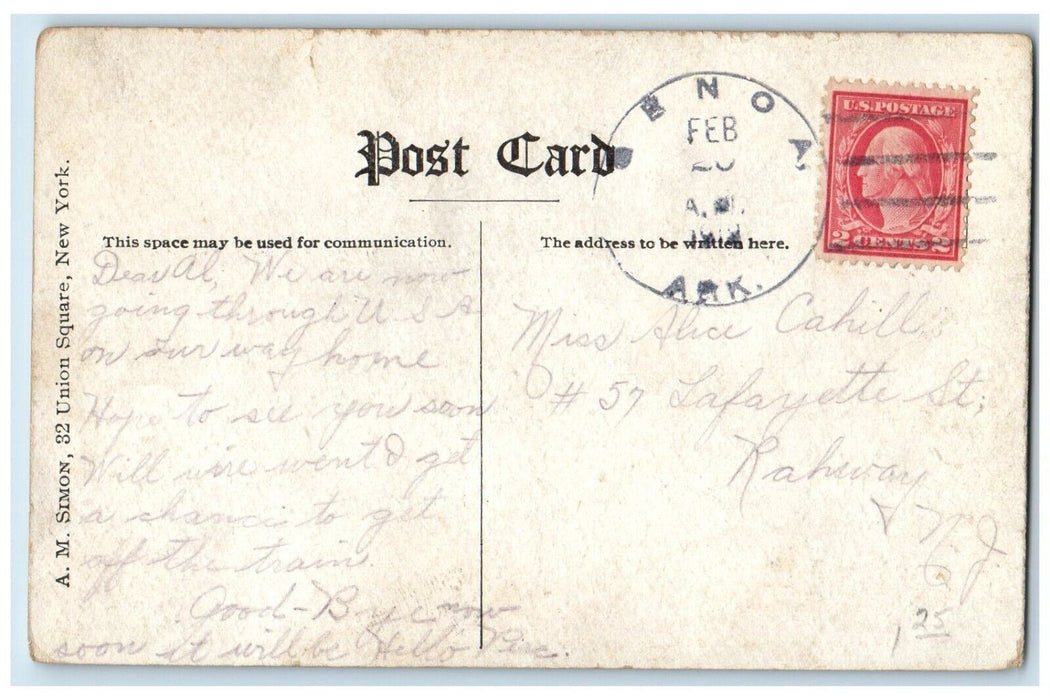 Post Card
A. M. SIMON, 32 Union Square, New York.
This space may be used for communication.
Dear Al, We are now
going through U S A
on our way home
Hope to see you soon
Will wire went I get
a chance to get
off the train.
Good-Bye now
soon it will be Hello
The address to be written here.
Miss Alice Cahill
# 57 Lafayette St,
Rahway
N. J.
1 25
ENO
FEB
20
A.M.
ARK.
U.S. POSTAGE
2 CENTS 2